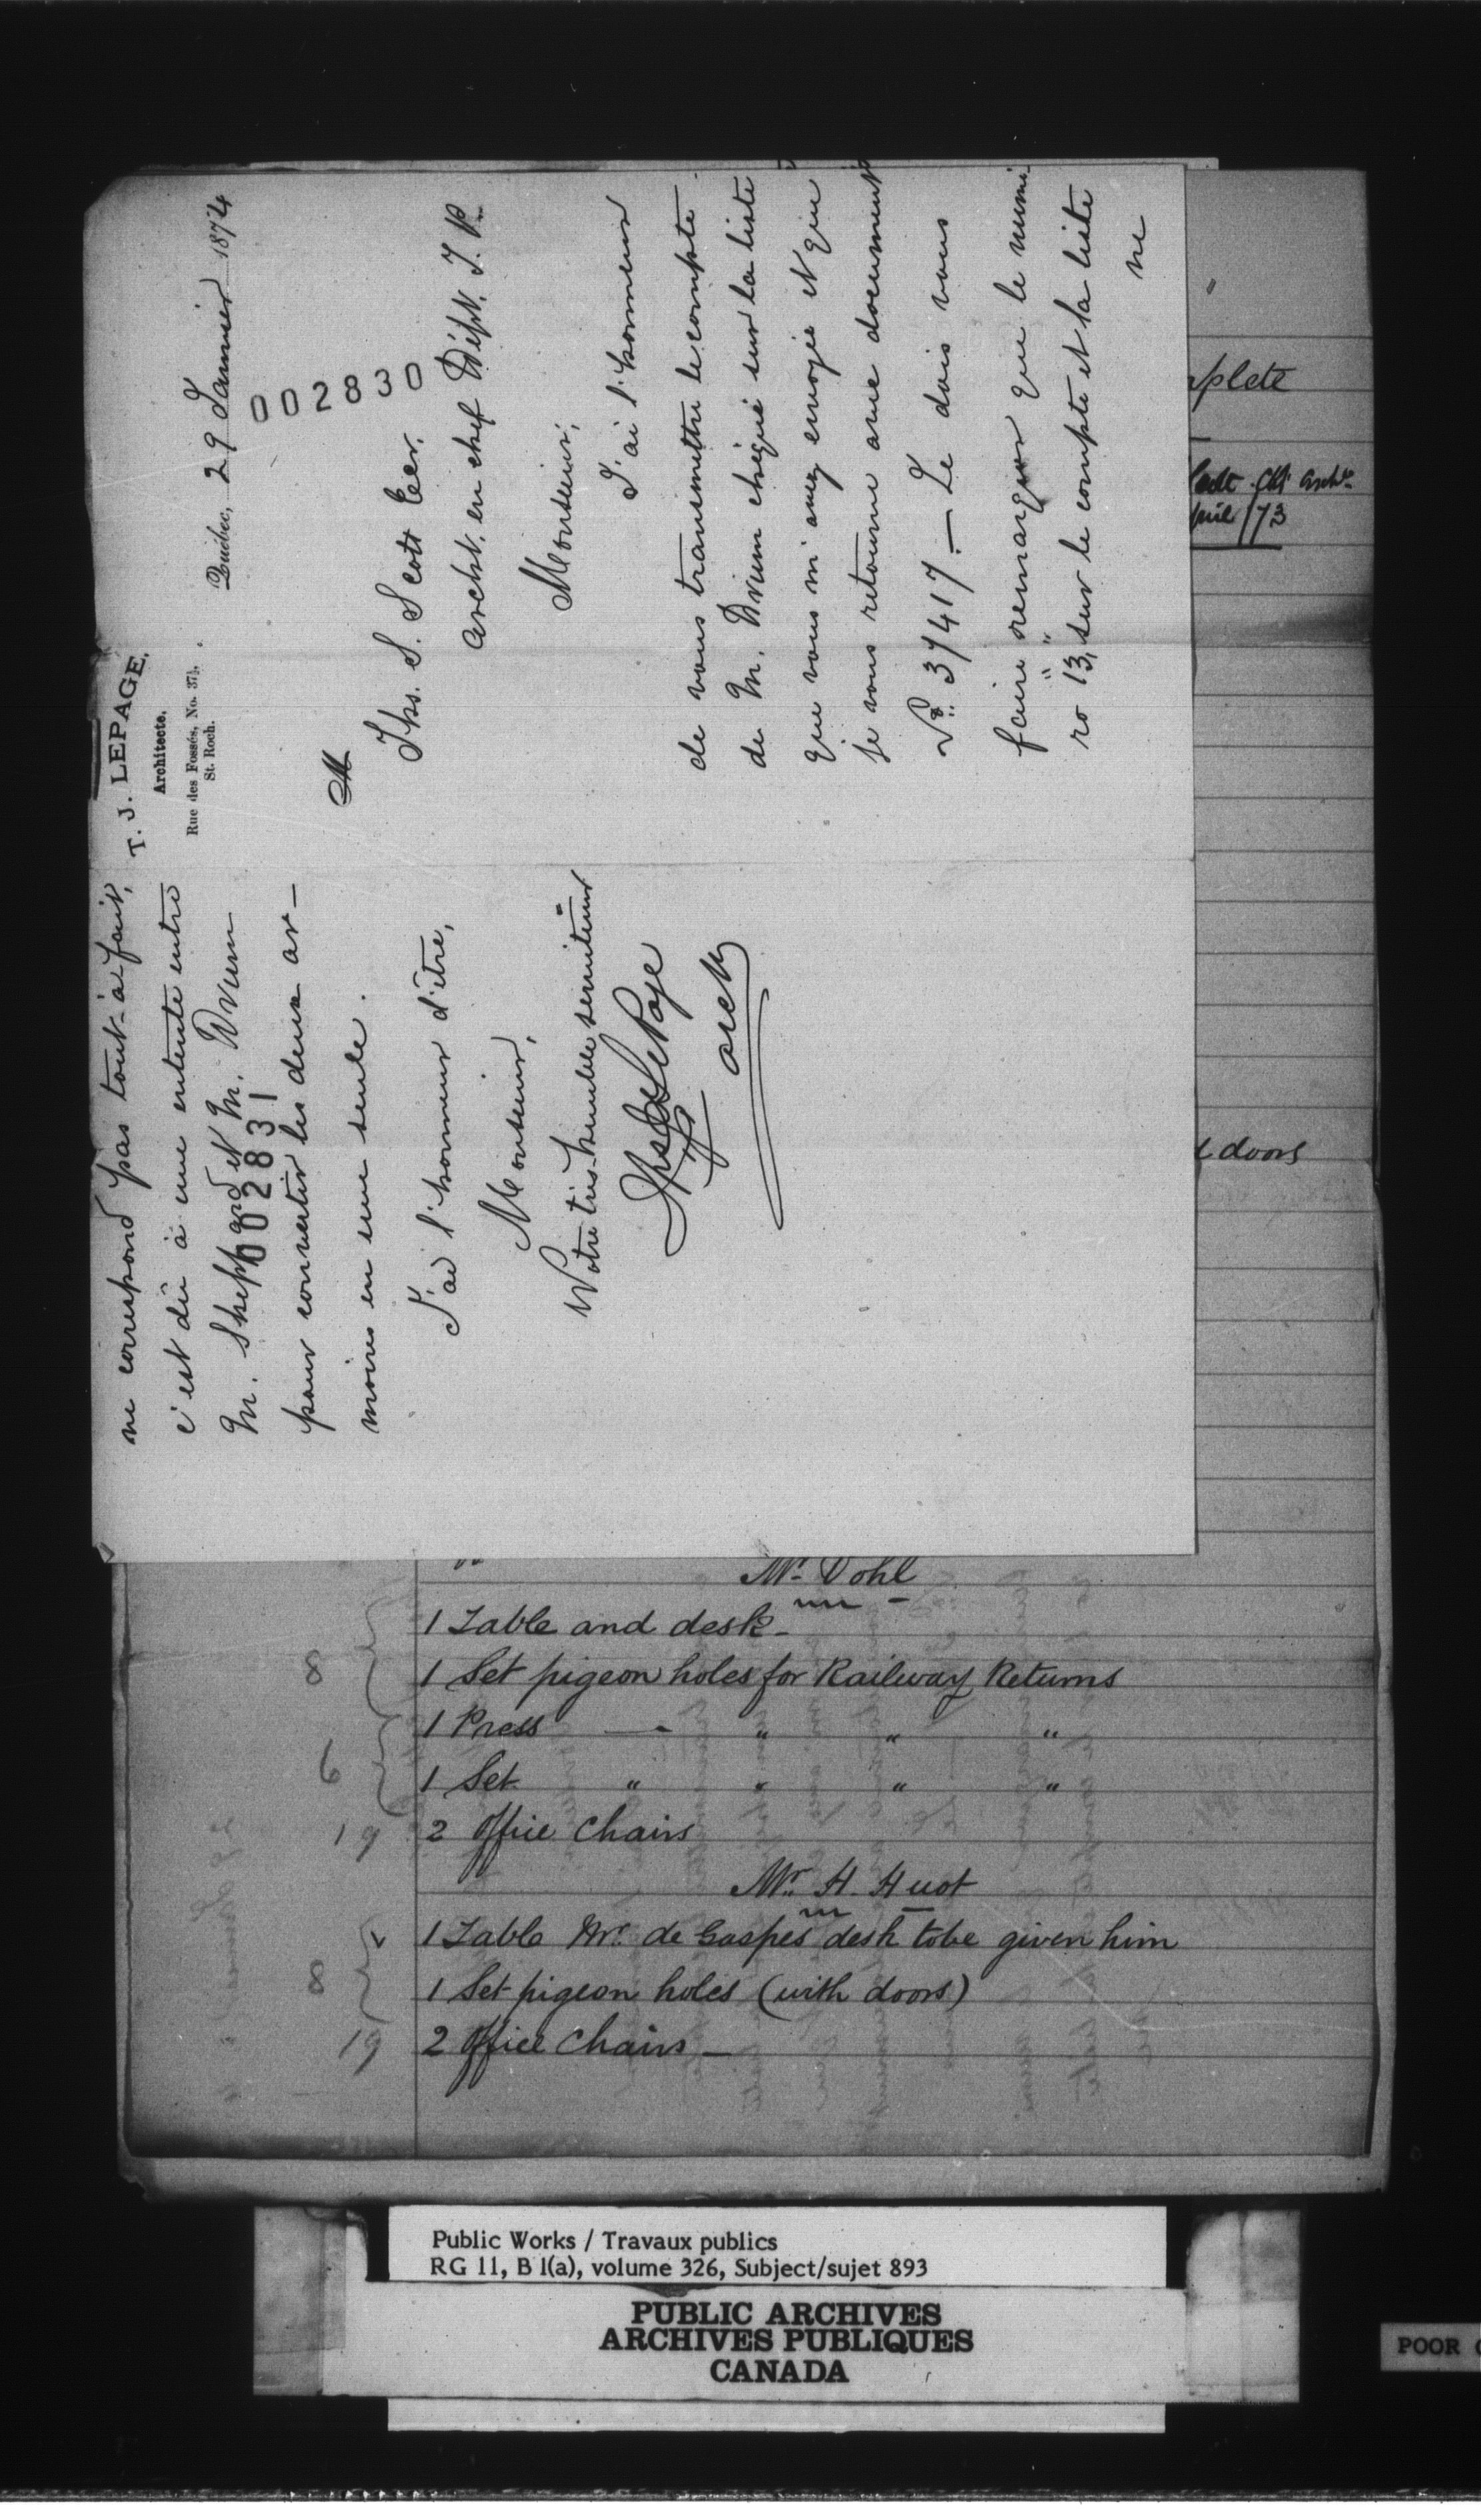 T. J. LEPAGE,
Architecte,
Rue des Fossés, No. 37½,
St. Roch.
Québec, 29 Janvier 1874
002830
M
Ths. S. Scott Ecr.
Archt. en chef Dépt. T. P.
Monsieur,
J'ai l'honneur
de vous transmettre le compte
de M. Drum chéqué sur la liste
que vous m'avez envoyée et que
je vous retourne avec document
No. 37417. — Je dois vous
faire remarquer que le numé
ro "13," sur le compte et la liste
ne
ne correspond pas tout-à-fait,
c'est dû à une entente entre
M. Sheppard et M. Drum
002831
pour convertir les deux ar-
moires en une seule.
J'ai l'honneur d'être,
Monsieur,
Votre très-humble serviteur
LePage
arch
plete
Scott Chf Archt.
pril /73
doors
Mr. Vohl
1 Table and desk -
8 1 Set pigeon holes for Railway Returns
1 Press — " " "
6 1 Set " " " "
19 2 Office Chairs
Mr. H. Huot
1 Table Mr. de Gaspés desk to be given him
8 1 Set pigeon holes (with doors)
19 2 Office Chairs —
Public Works / Travaux publics
RG 11, B 1(a), volume 326, Subject/sujet 893
PUBLIC ARCHIVES
ARCHIVES PUBLIQUES
CANADA
POOR